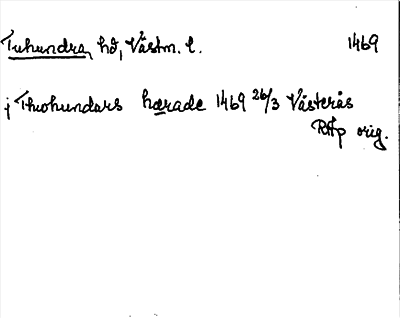 Tuhundra, hd, Västm. l. 1469
j Thwhundars hærade 1469 26/3 Västerås
RAp orig.